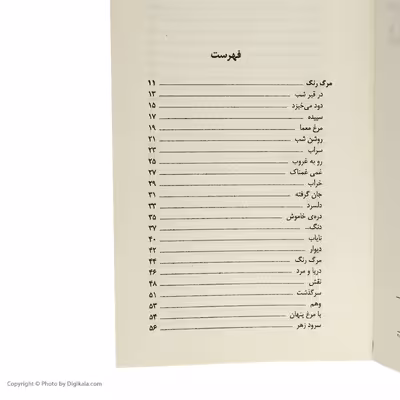 فهرست
مرگ رنگ ۱۱
در قیر شب ۱۳
دود می‌خیزد ۱۵
سپیده ۱۷
مرغ معما ۱۹
روشن شب ۲۱
سراب ۲۳
رو به غروب ۲۵
غمی غمناک ۲۷
خراب ۲۹
جان گرفته ۳۱
دلسرد ۳۳
دره‌ی خاموش ۳۵
دنگ.. ۳۷
نایاب ۴۰
دیوار ۴۲
مرگ رنگ ۴۴
دریا و مرد ۴۶
نقش ۴۸
سرگذشت ۵۱
وهم ۵۳
با مرغ پنهان ۵۴
سرود زهر ۵۶
Copyright © Photo by Digikala.com